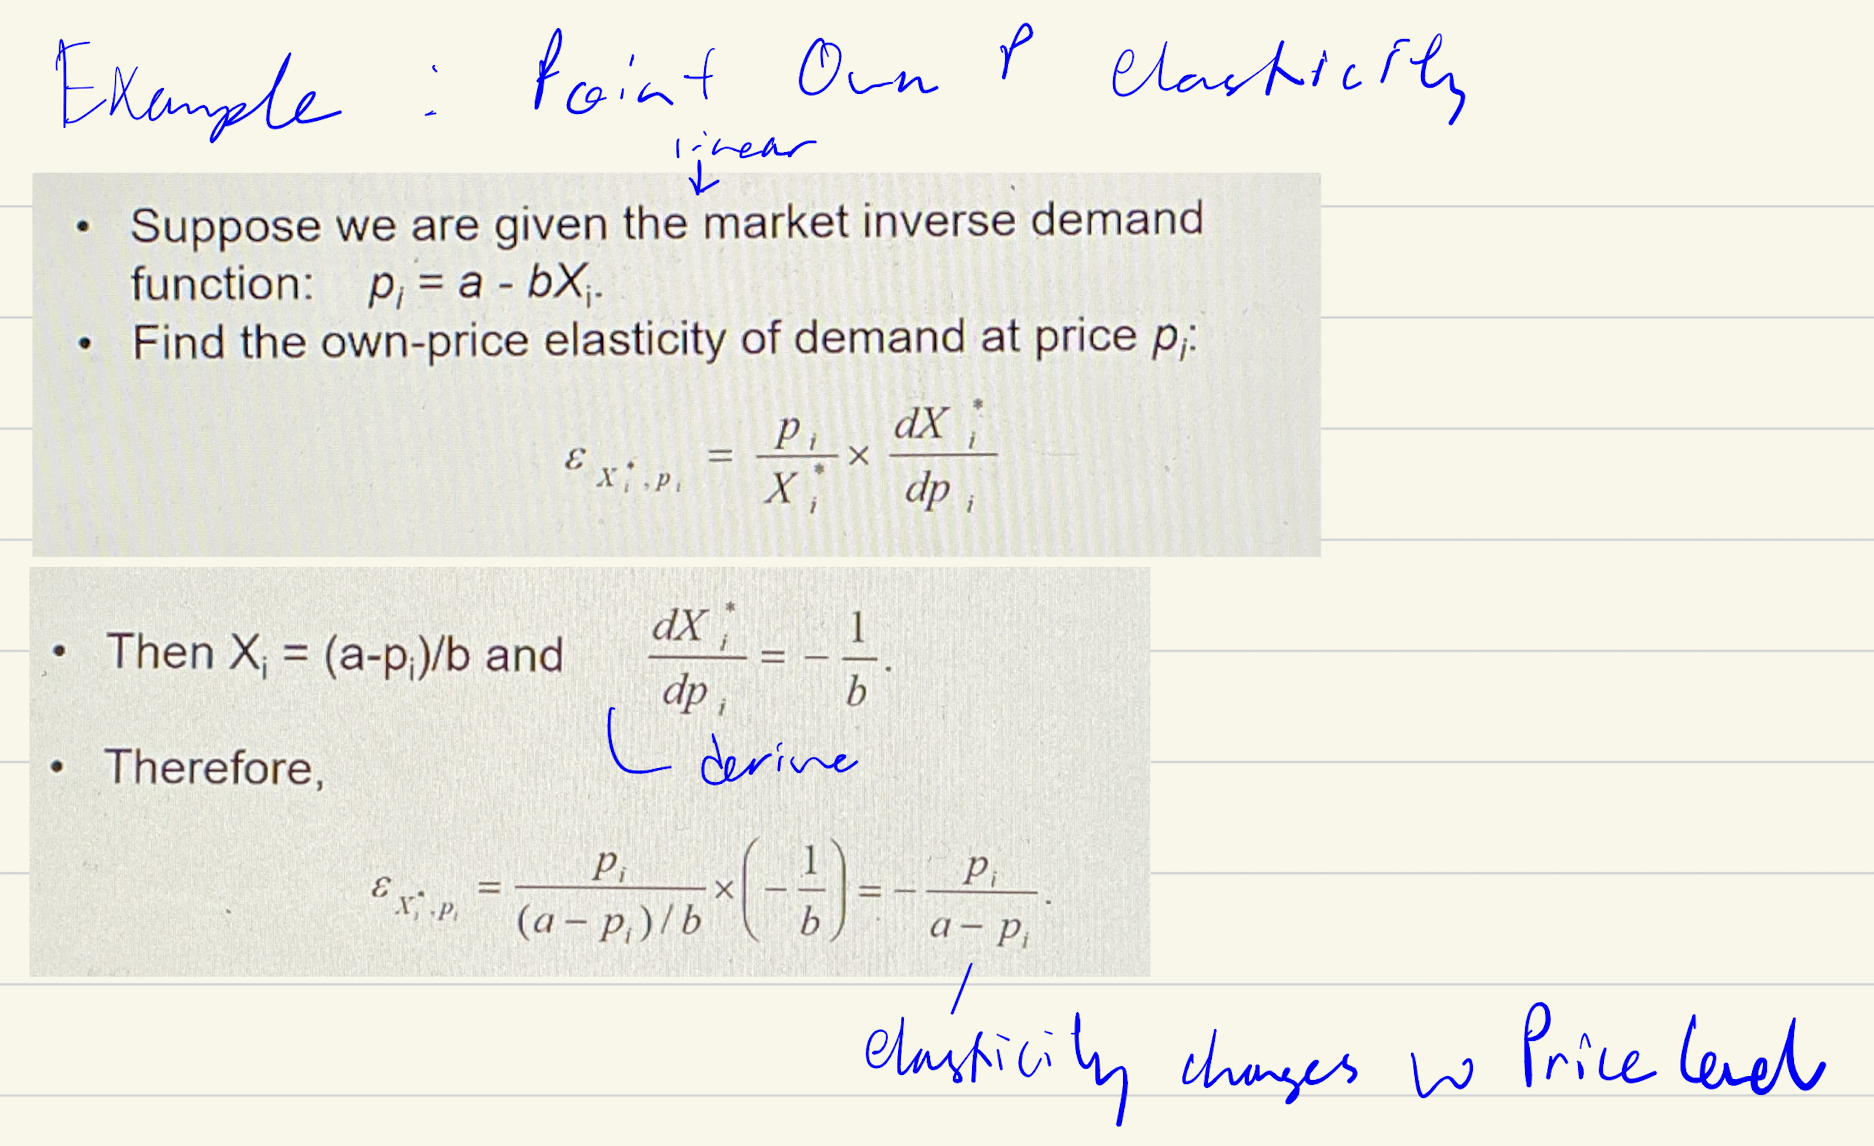 Example : Point Own P elasticity
linear
↓
• Suppose we are given the market inverse demand
function: pᵢ = a - bXᵢ.
• Find the own-price elasticity of demand at price pᵢ:
ε Xᵢ*, pᵢ = pᵢ / Xᵢ* × dXᵢ* / dpᵢ
• Then Xᵢ = (a-pᵢ)/b and dXᵢ* / dpᵢ = − 1 / b.
derive
• Therefore,
ε Xᵢ*, pᵢ = pᵢ / ((a − pᵢ) / b) × (− 1 / b) = − pᵢ / (a − pᵢ).
elasticity changes w Price level